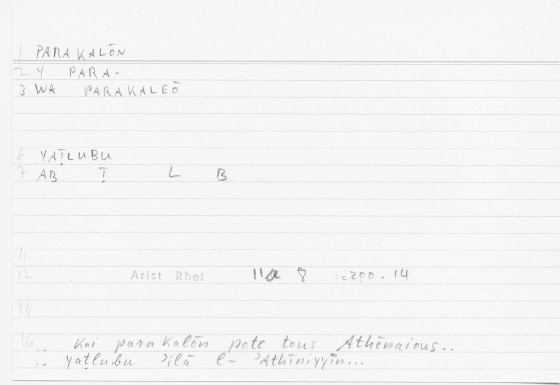 1 PARAKALŌN
2 Y PARA-
3 WA PARAKALEŌ
6 YAṬLUBU
7 AB Ṭ L B
9
12 Arist Rhet 11a 8 :=200.14
14
16 .. Kai parakalōn pote tous Athēnaious..
.. yaṭlubu ʾilā l-ʾAthīniyyīn...